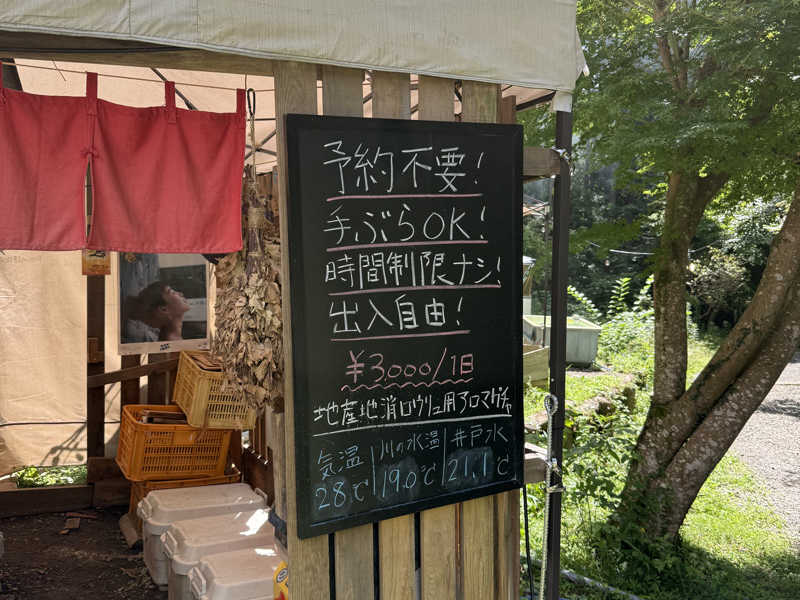 予約不要!
手ぶらOK!
時間制限ナシ!
出入自由!
¥3,000/1日
地産地消ロウリュ用アロマ
気温 川の水温 井戸水
28℃ 19.0℃ 21.1℃